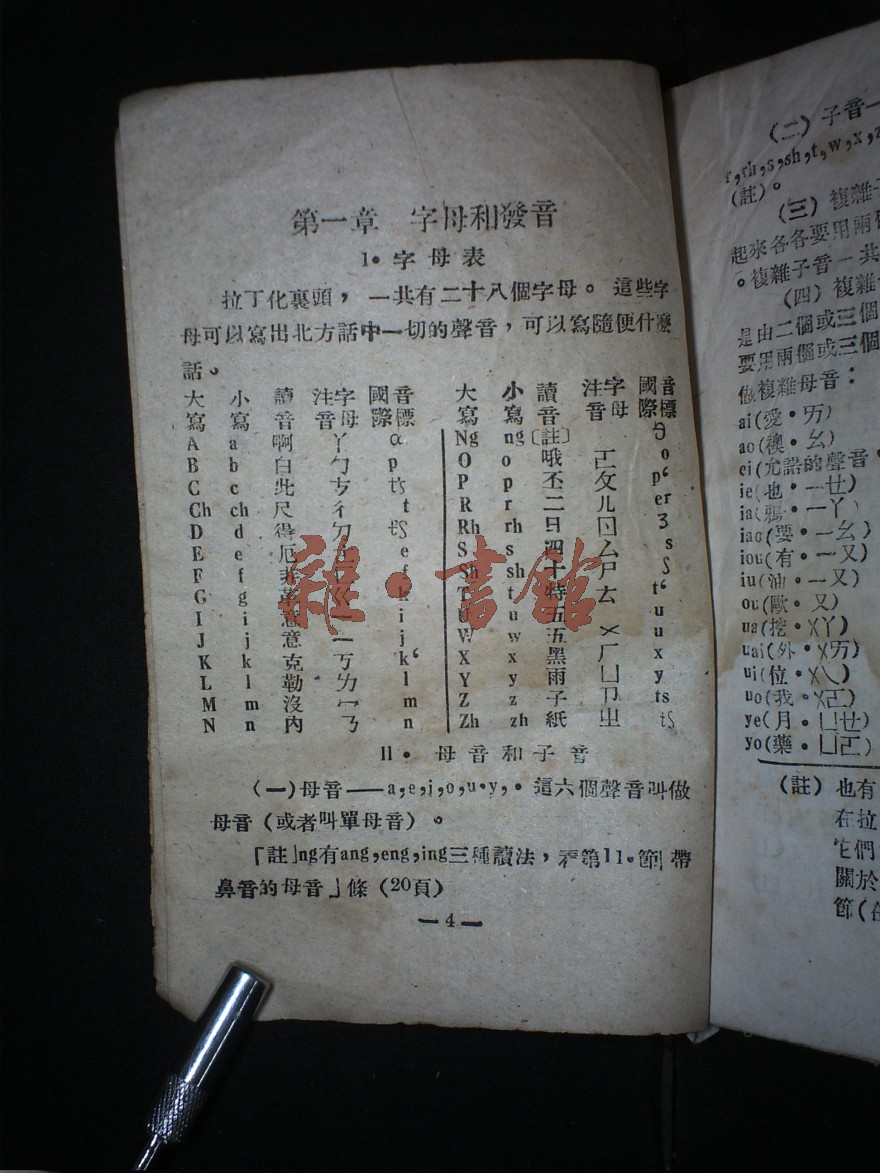 第一章 字母和發音
1•字母表
拉丁化裏頭，一共有二十八個字母。這些字
母可以寫出北方話中一切的聲音，可以寫隨便什麼
話。
大寫 小寫 讀音 注音字母 國際音標 大寫 小寫 讀音 注音字母 國際音標
A a 啊 ㄚ ɑ Ng ng [註]
B b 白 ㄅ p O o 哦 ㄛ o
C c 此 ㄘ P p 丕 ㄆ p‘
Ch ch 尺 ㄔ R r 二 ㄦ er
D d 得 ㄉ t Rh rh 日 ㄖ ʒ
E e 厄 e S s 四 ㄙ s
F f 非 f Sh sh 十 ㄕ
G g 革 ㄍ k T t 特 ㄊ t‘
I i 意 一 i U u 五 u
J j 意 一 j W w 五 ㄨ u
K k 克 ㄎ k‘ X x 黑 ㄏ x
L l 勒 ㄌ l Y y 雨 ㄩ y
M m 沒 ㄇ m Z z 子 ㄗ ts
N n 內 ㄋ n Zh zh 紙 ㄓ
11•母音和子音
(一)母音——a,e,i,o,u•y,•這六個聲音叫做
母音(或者叫單母音)。
「註」ng有ang,eng,ing三種讀法，看第11•節「帶
鼻音的母音」條(20頁)
—4—
雜•書館
(二)子音一
r,rh,s,sh,t,w,x,z
(註)。
(三)複雜子
起來各各要用兩個
。複雜子音一共
(四)複雜
是由二個或三個
要用兩個或三個
做複雜母音：
ai(愛•ㄞ)
ao(襖•ㄠ)
ei(允諾的聲音•
ie(也•一ㄝ)
ia(鴉•一ㄚ)
iao(要•一ㄠ)
iou(有•一又)
iu(油•一又)
ou(歐•又)
ua(挖•ㄨㄚ)
uai(外•ㄨㄞ)
ui(位•ㄨㄟ)
uo(我•ㄨㄛ)
ye(月•ㄩㄝ)
yo(藥•ㄩㄛ)
(註)也有
在拉
它們
關於
節(在